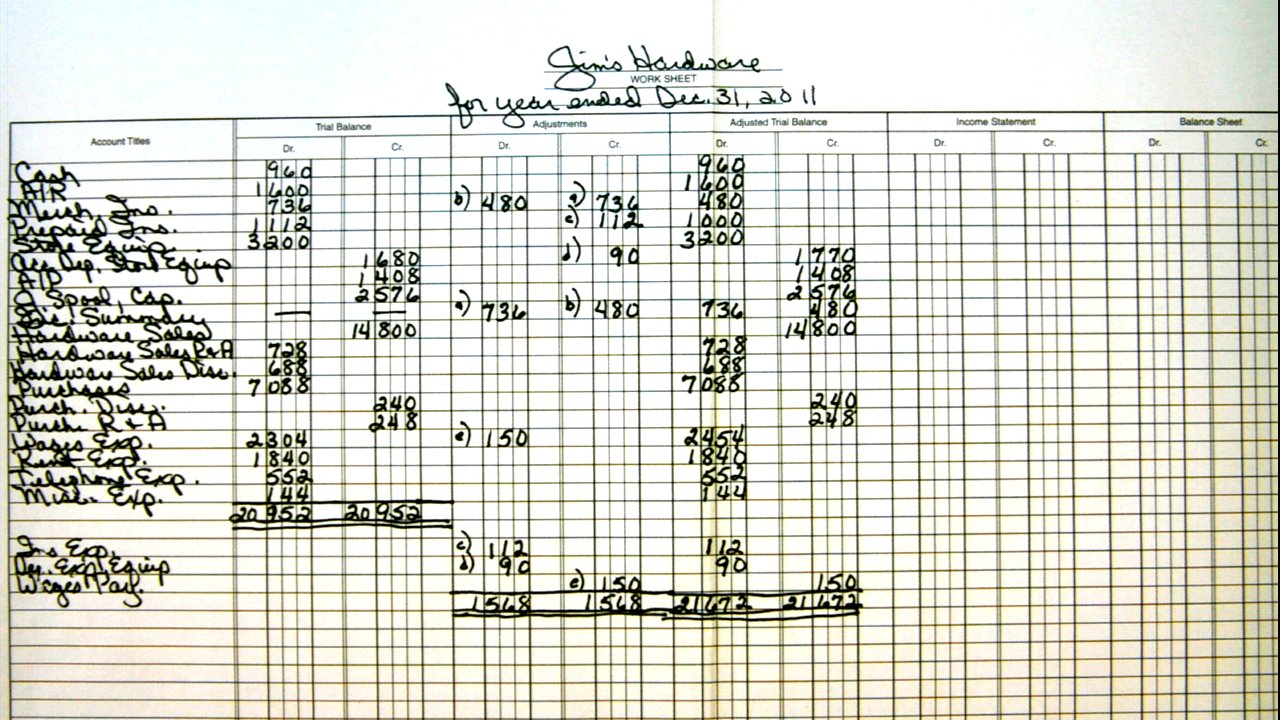 Jim's Hardware
WORK SHEET
for year ended Dec. 31, 2011
Account Titles Trial Balance Adjustments Adjusted Trial Balance Income Statement Balance Sheet
Dr. Cr. Dr. Cr. Dr. Cr. Dr. Cr. Dr. Cr.
Cash 960 960
A/R 1600 1600
Merch. Inv. 736 b) 480 a) 736 480
Prepaid Ins. 1112 c) 112 1000
Store Equip. 3200 3200
Acc. Dep. Store Equip 1680 d) 90 1770
A/P 1408 1408
J. Spool, Cap. 2576 2576
Inc. Summary — — a) 736 b) 480 736 480
Hardware Sales 14800 14800
Hardware Sales R+A 728 728
Hardware Sales Disc. 688 688
Purchases 7088 7088
Purch. Disc. 240 240
Purch. R + A 248 248
Wages Exp. 2304 e) 150 2454
Rent Exp. 1840 1840
Telephone Exp. 552 552
Misc. Exp. 144 144
20952 20952
Ins Exp. c) 112 112
Dep. Exp. Equip d) 90 90
Wages Pay. e) 150 150
1568 1568 21672 21672